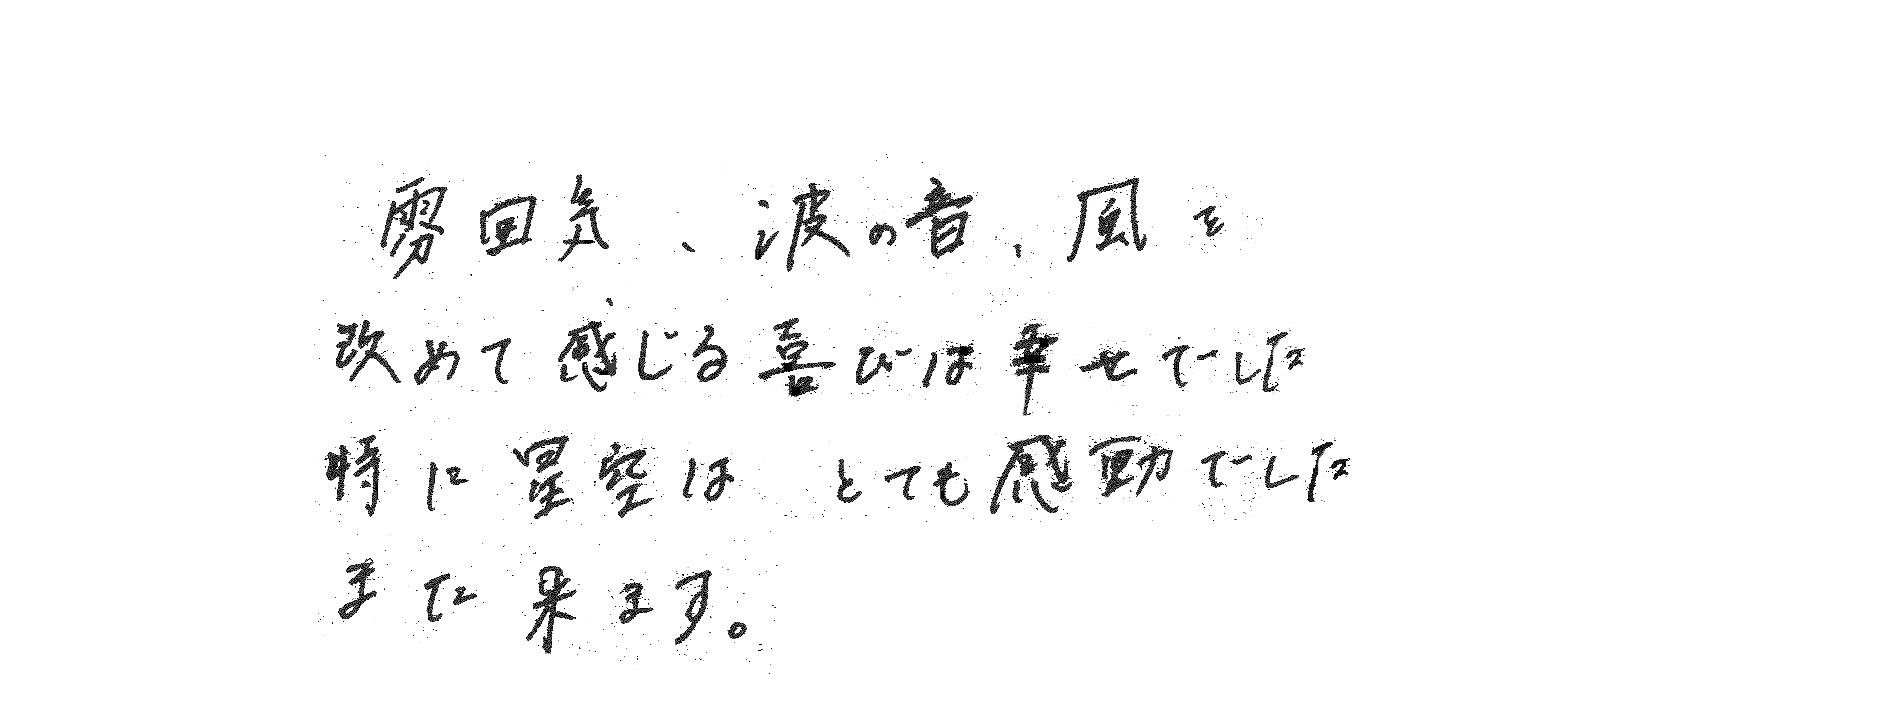 雰囲気、波の音、風を
改めて感じる喜びは幸せでした
特に星空は とても感動でした
また来ます。